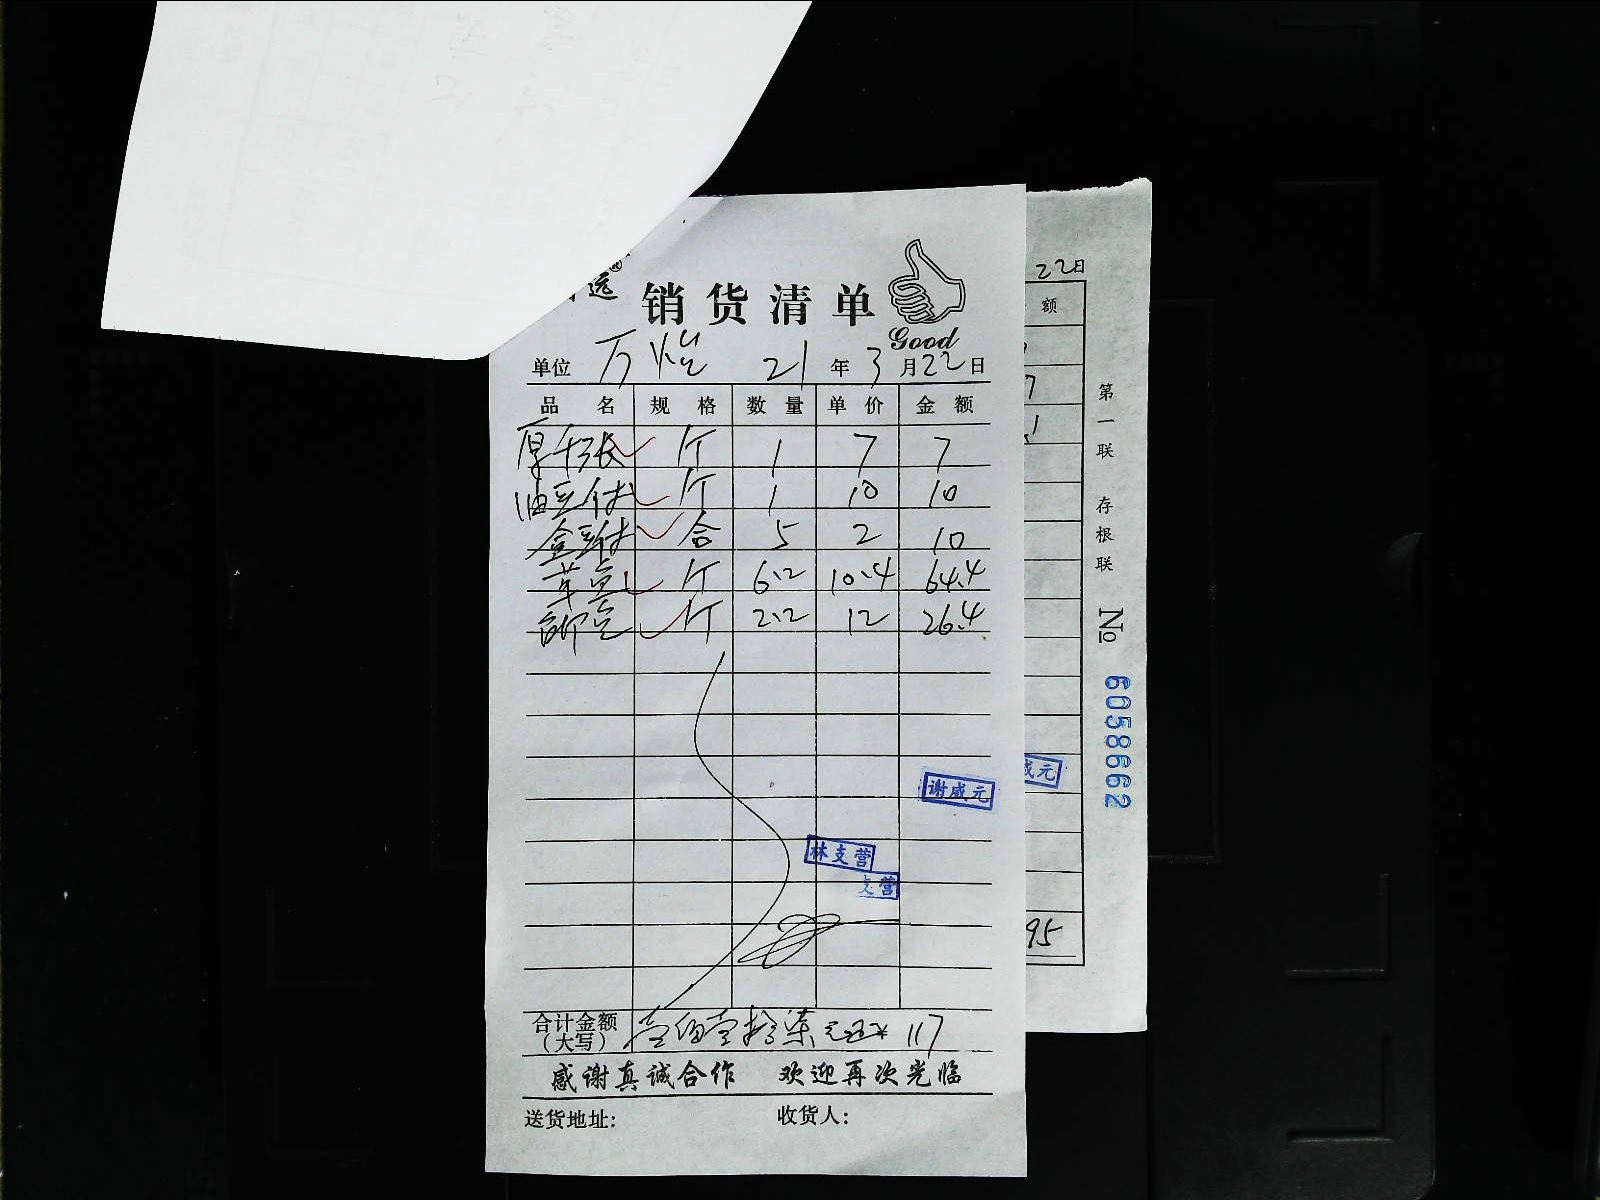 远®
销货清单
Good
单位 万 21年3月22日
品名 规格 数量 单价 金额
厚千张 斤 1 7 7
油豆付 斤 1 10 10
盒豆付 合 5 2 10
草鱼 斤 6.2 10.4 64.4
斤 2.2 12 26.4
谢咸元
林支营
支营
合计金额（大写） 壹佰壹拾柒元正¥ 117
感谢真诚合作 欢迎再次光临
送货地址: 收货人:
22日
额
7
1
元
95
第一联 存根联 № 6058662